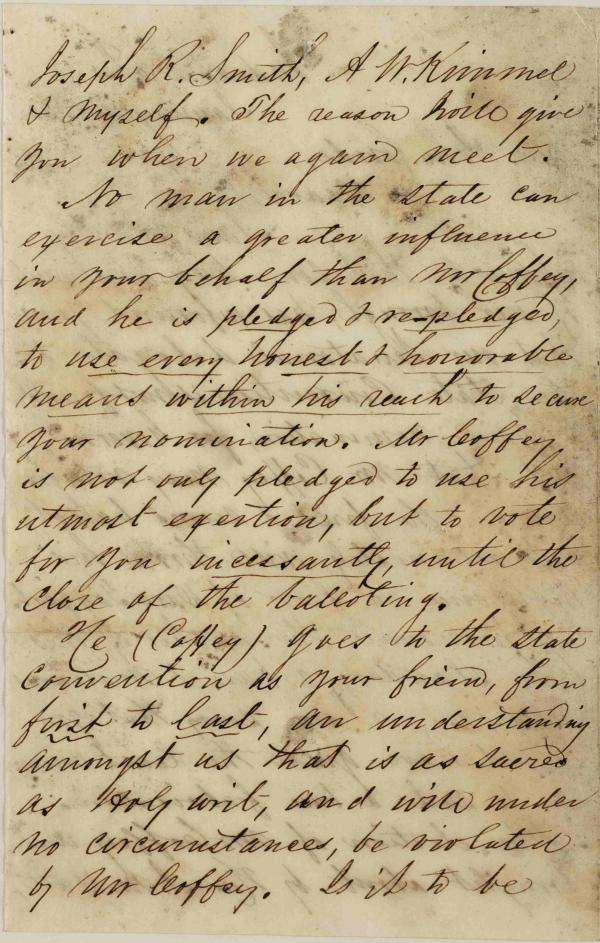 Joseph R. Smith, A W. Kimmel
& myself. The reason I will give
you when we again meet.
No man in the state can
exercise a greater influence
in your behalf than Mr Coffey,
and he is pledged & re-pledged,
to use every honest & honorable
means within his reach to secure
your nomination. Mr Coffey
is not only pledged to use his
utmost exertion, but to vote
for you incessantly, until the
close of the balloting.
He (Coffey) goes to the state
convention as your friend, from
first to last, an understanding
amongst us that is as sacred
as Holy writ, and will under
no circumstances, be violated
by Mr Coffey. Is it to be